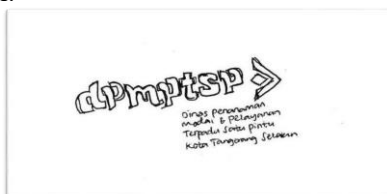 dpmptsp
Dinas Penanaman
modal & Pelayanan
Terpadu Satu Pintu
Kota Tangerang Selatan